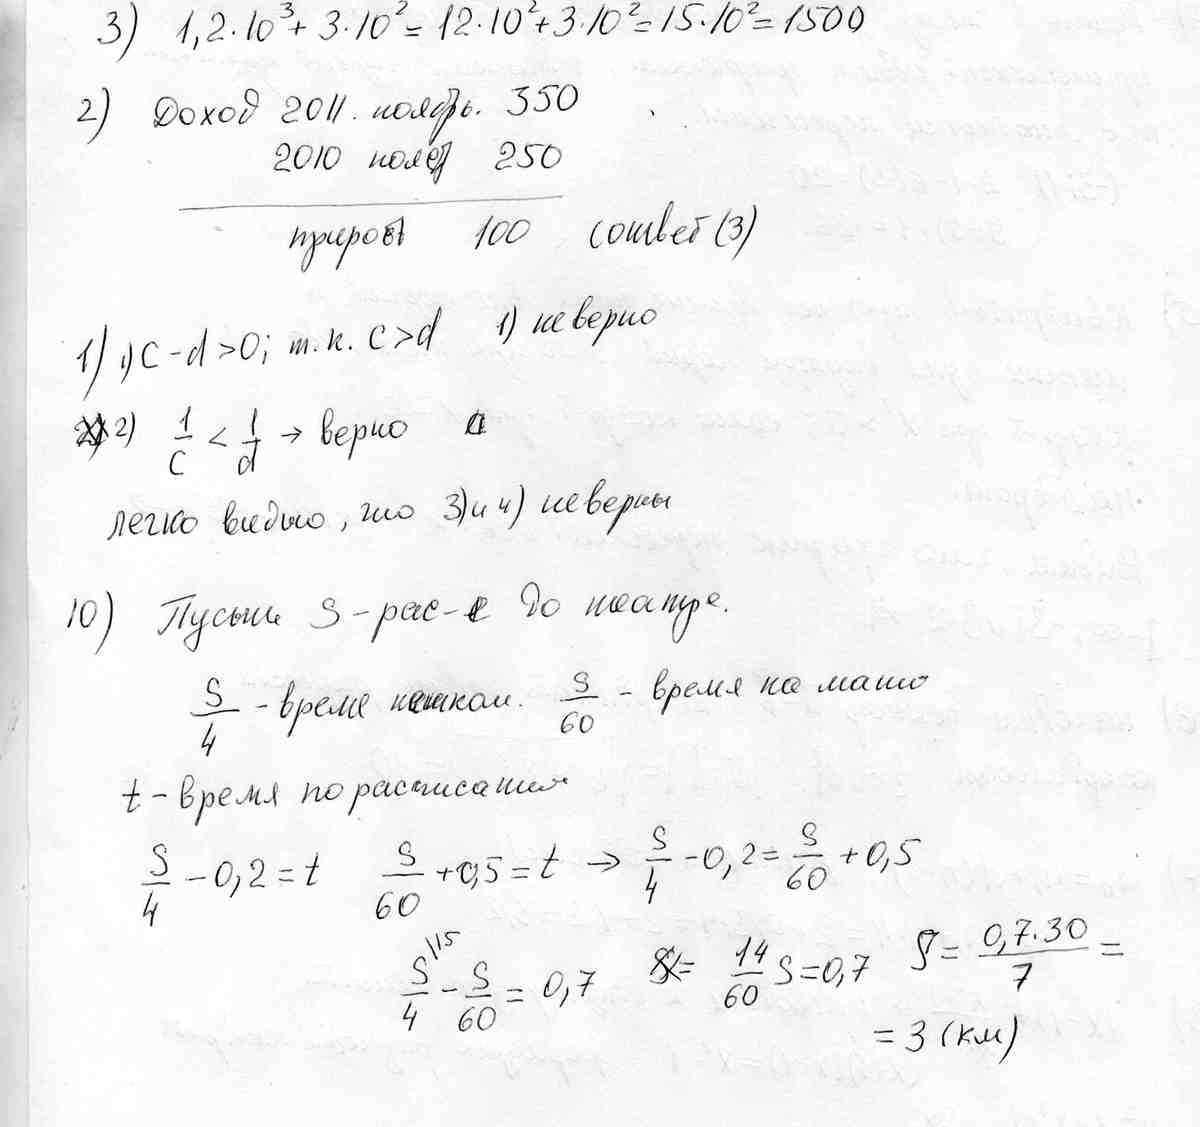 3) 1,2·10³+ 3·10²= 12·10²+3·10²=15·10²=1500
2) Доход 2011. ноябрь. 350
2010 нояб 250
прирост 100 (ответ (3)
1) 1) c-d>0; т.к. c>d 1) неверно
2) 1/c < 1/d → верно
легко видно, что 3) и 4) неверны
10) Пусть S - рас-е до театра.
S/4 - время пешком. S/60 - время на маши
t - время по расписания
S/4 - 0,2 = t S/60 + 0,5 = t → S/4 - 0,2 = S/60 + 0,5
S/4 \15 - S/60 = 0,7 14/60 S = 0,7 S = 0,7·30/7 =
= 3 (км)